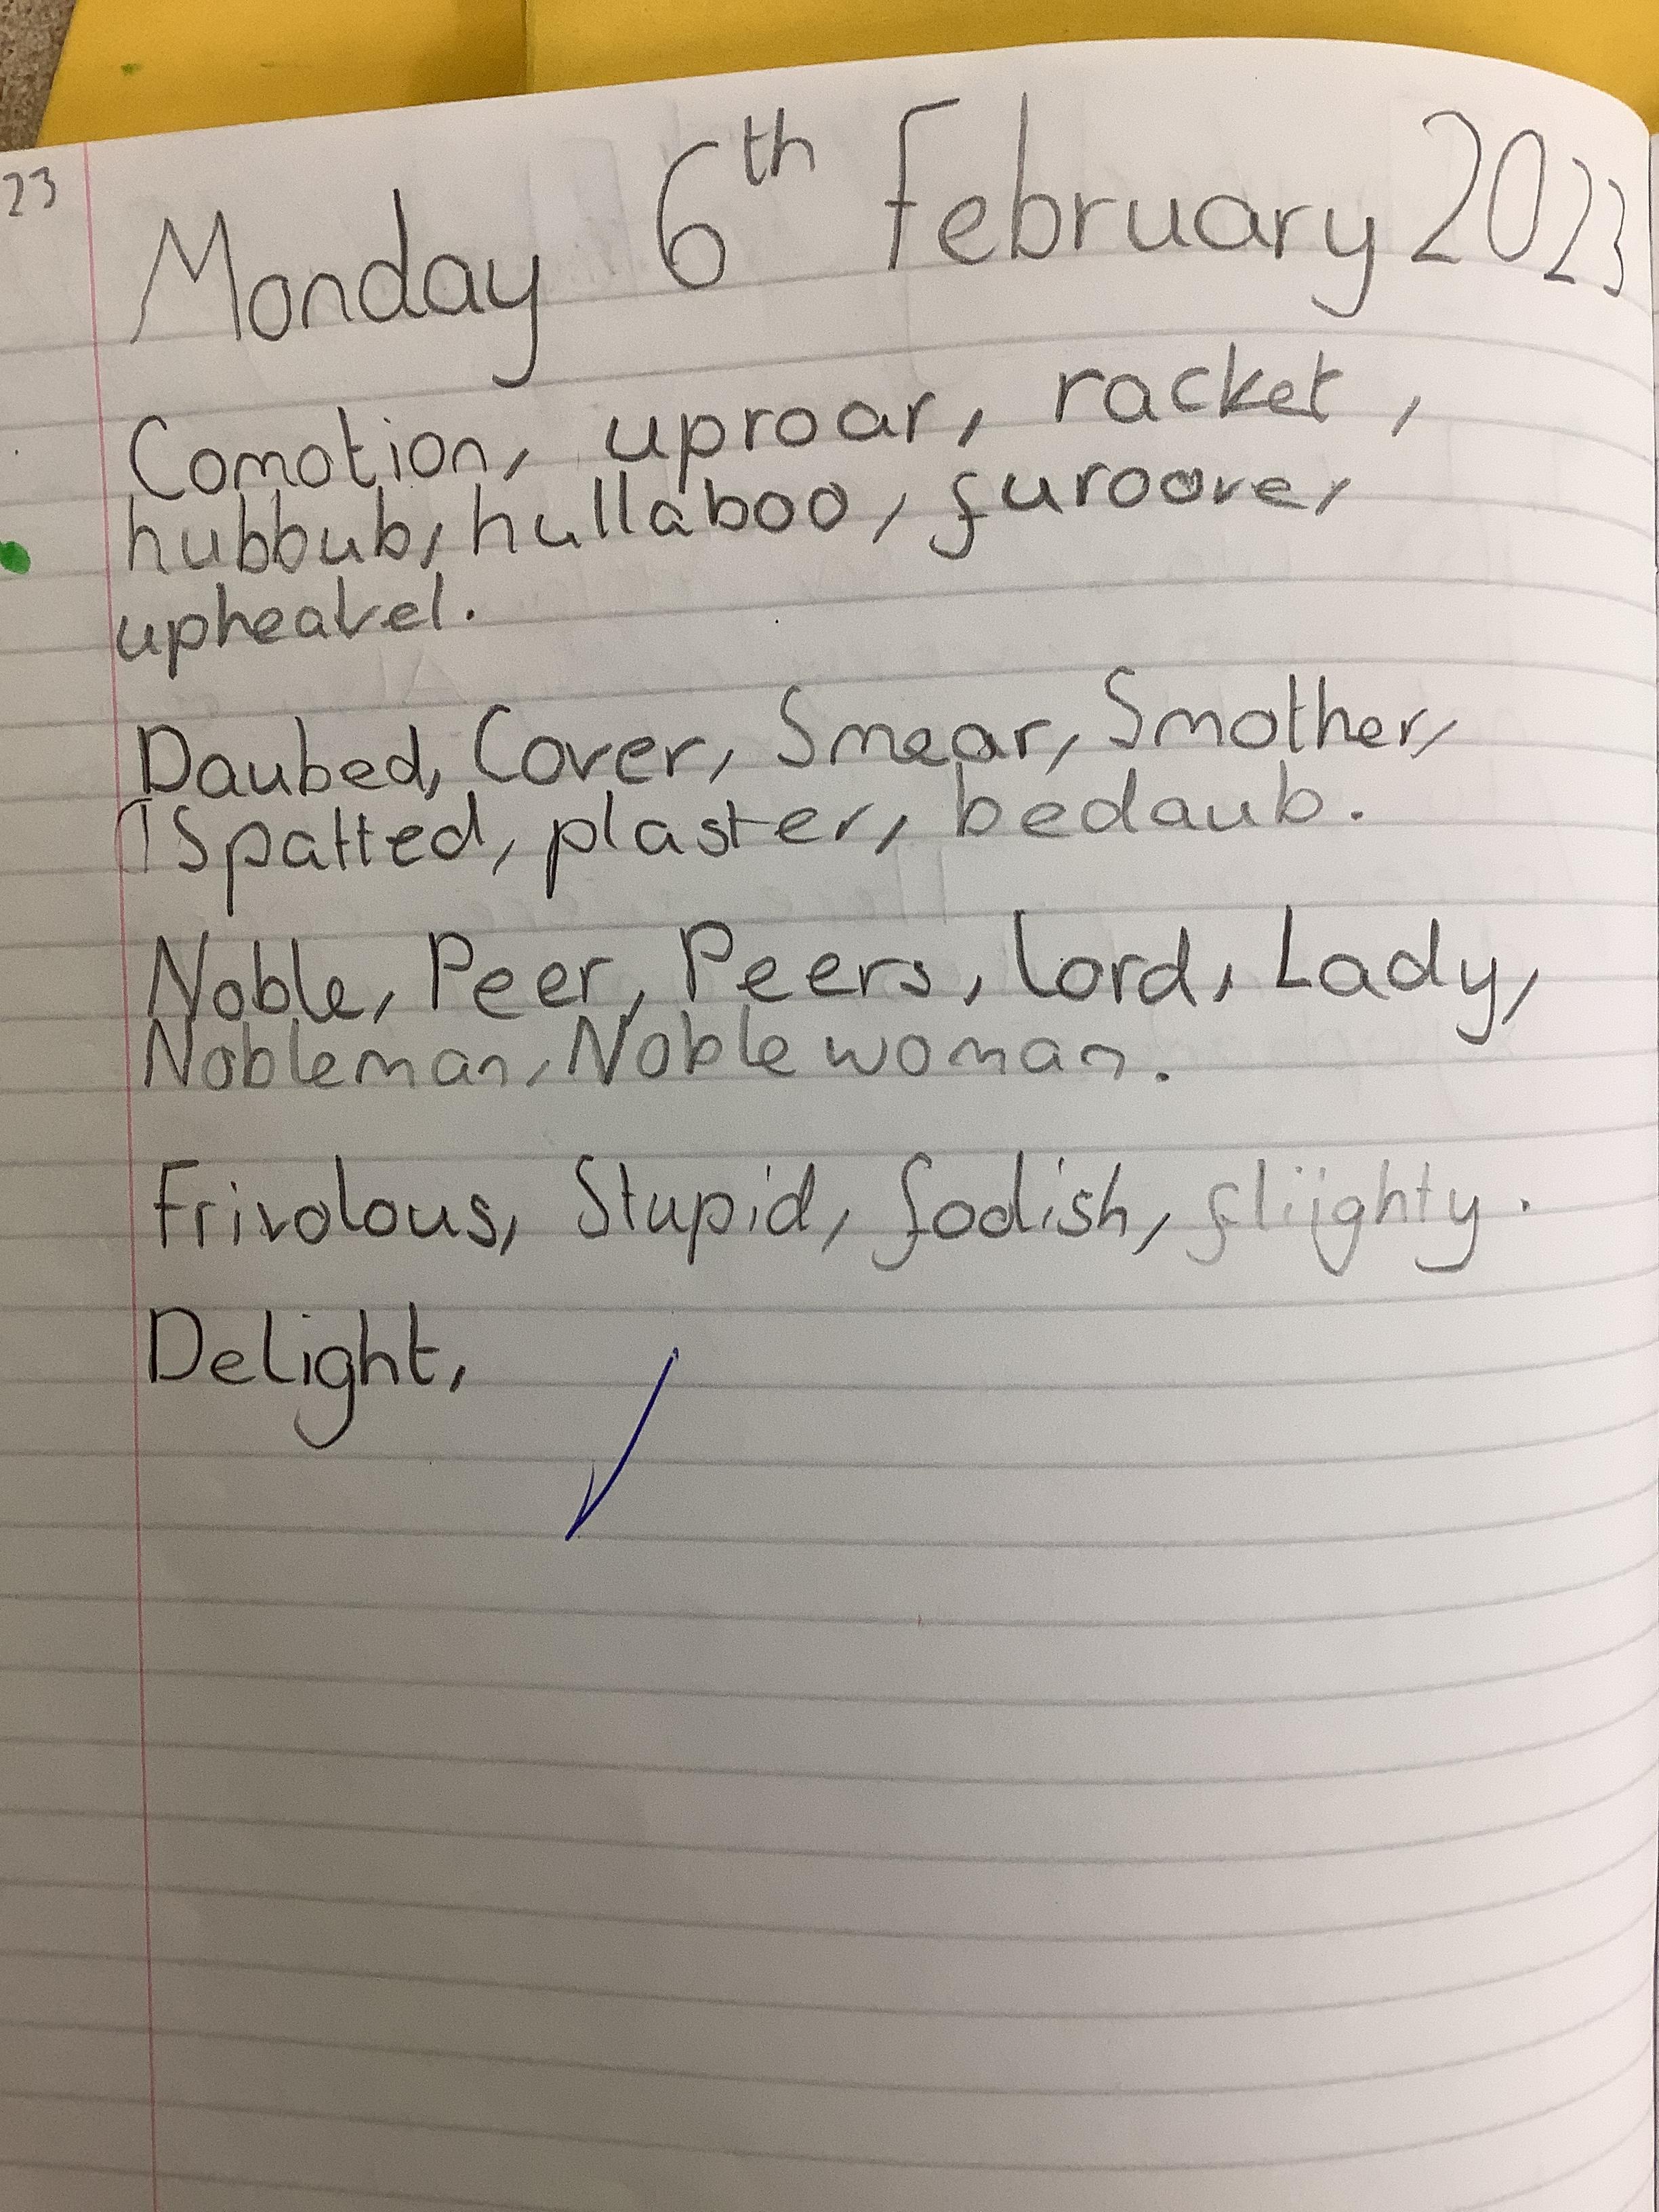 23
Monday 6th February 2023
Comotion, uproar, racket,
hubbub, hullaboo, furoore,
upheavel.
Daubed, Cover, Smear, Smother,
Spatted, plaster, bedaub.
Noble, Peer, Peers, Lord, Lady,
Nobleman, Noblewoman.
Frivolous, Stupid, foolish, fliighty.
Delight,